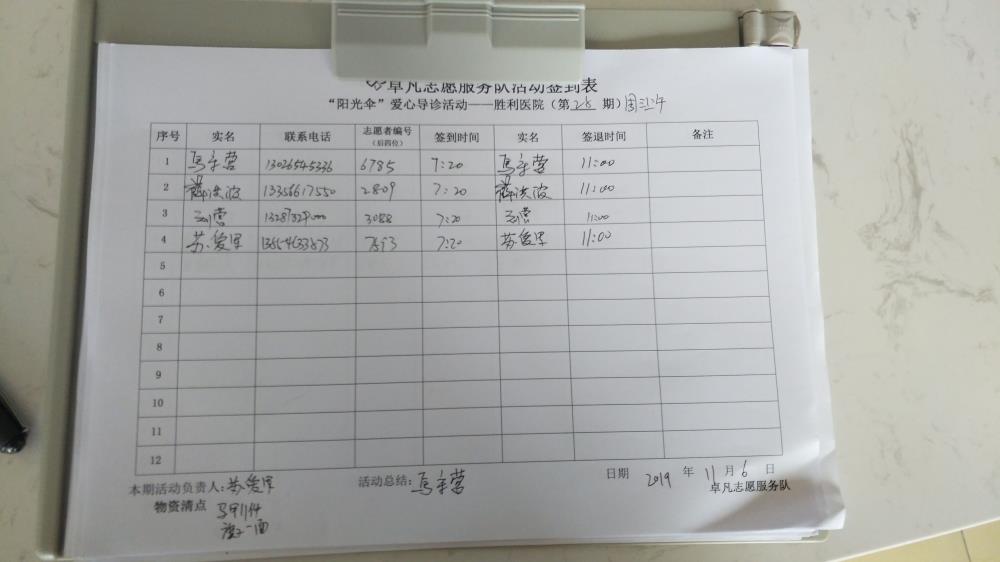 卓凡志愿服务队活动签到表
“阳光伞”爱心导诊活动——胜利医院（第 28 期）周三上午
序号 实名 联系电话 志愿者编号（后四位） 签到时间 实名 签退时间 备注
1 马辛营 13026545336 6785 7:20 马辛营 11:00
2 薛洪波 13356617550 2809 7:20 薛洪波 11:00
3 3088 7:20 11:00
4 苏俊军 7593 7:20 苏俊军 11:00
5
6
7
8
9
10
11
12
本期活动负责人：苏俊军 活动总结：马辛营 日期 2019 年 11 月 6 日
物资清点 马甲11件 卓凡志愿服务队
一面